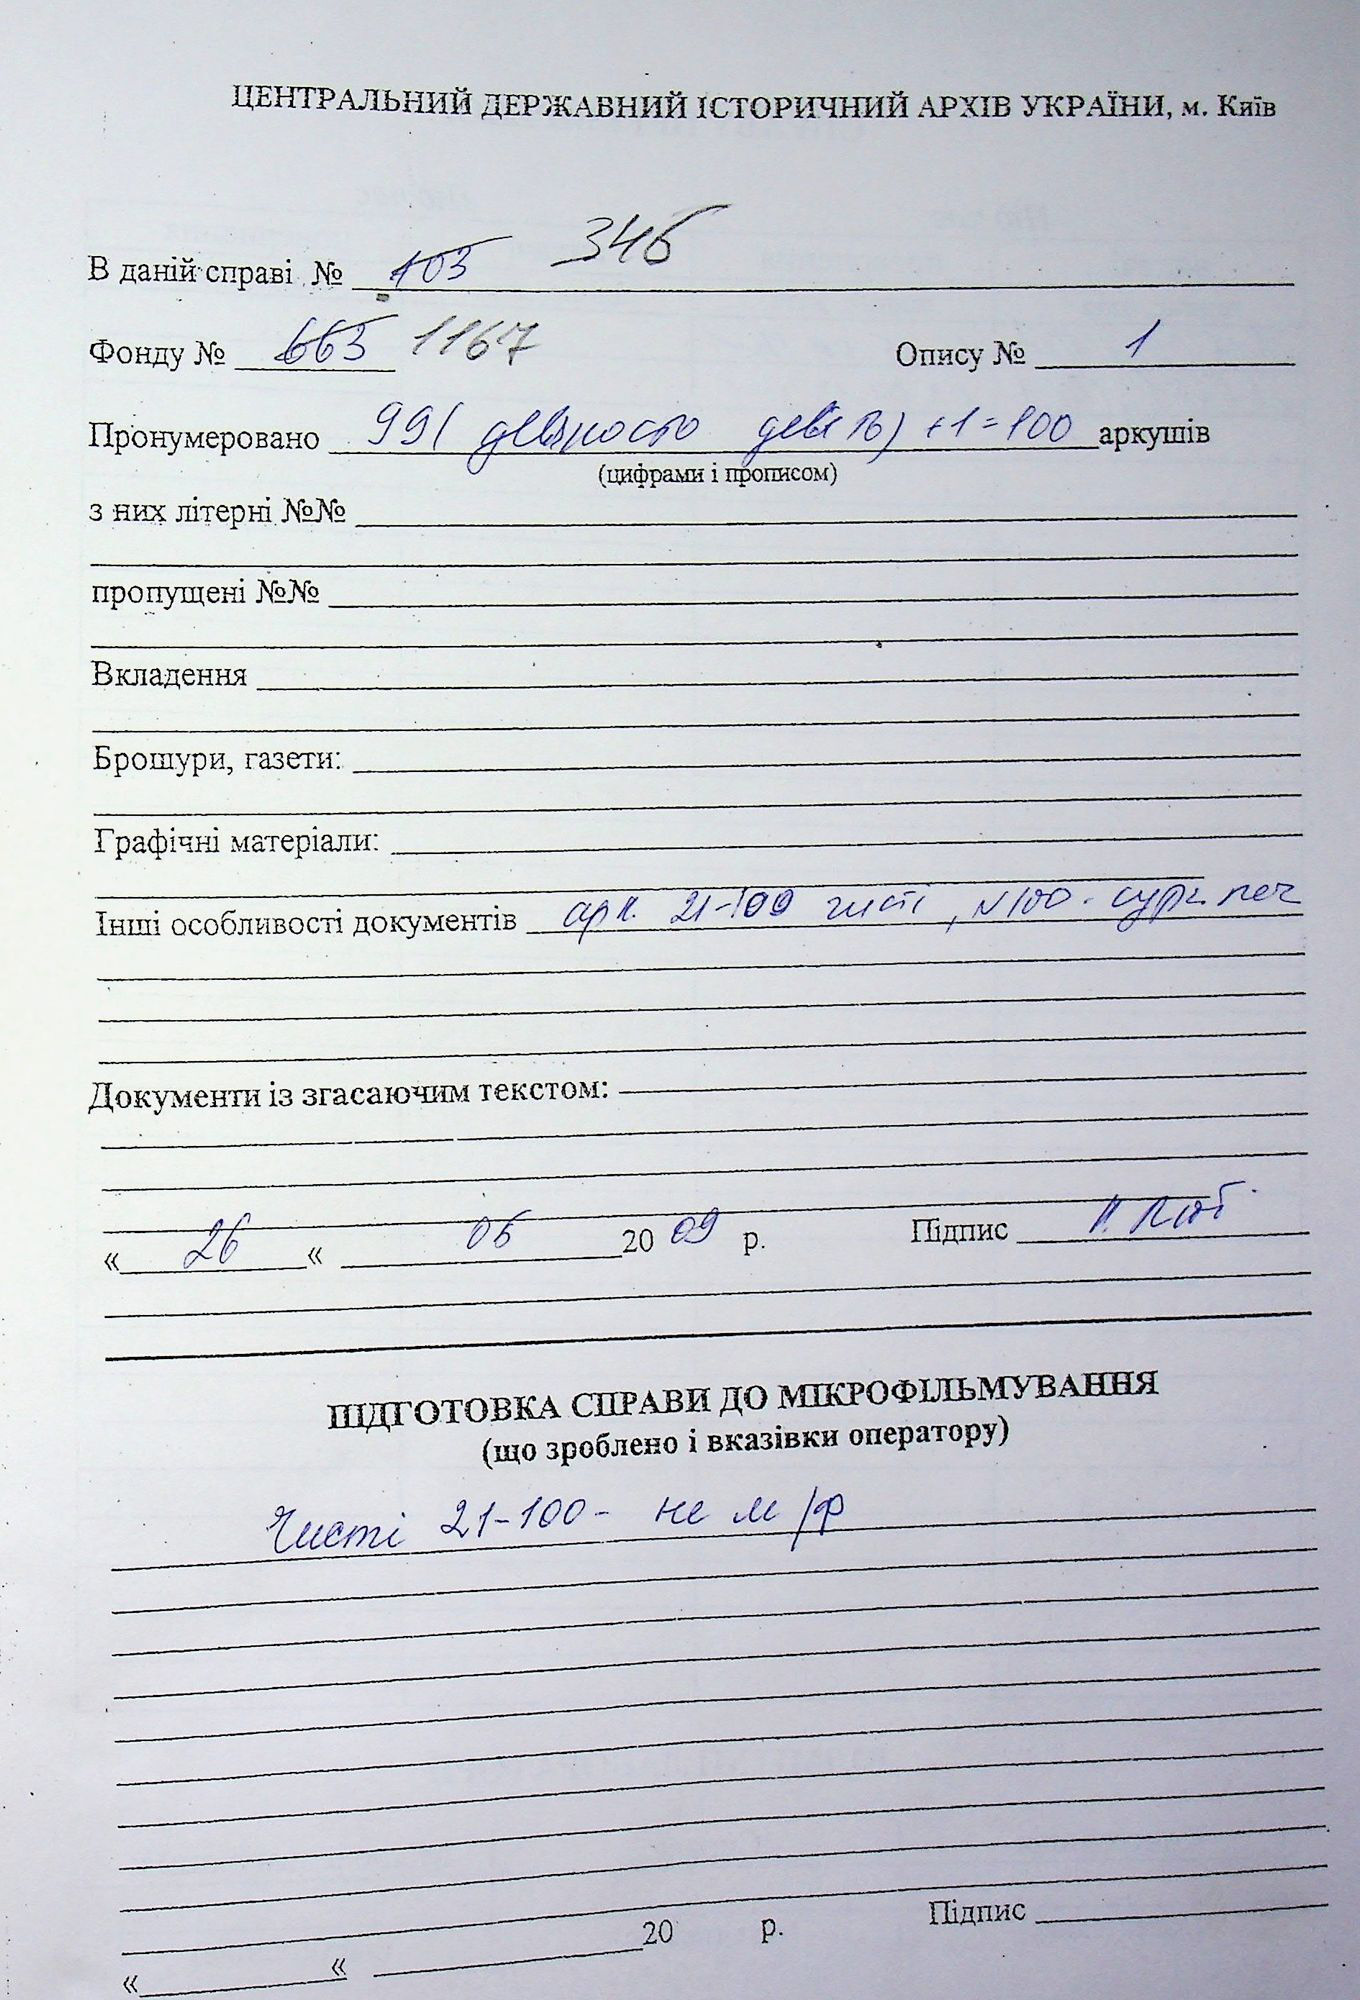 ЦЕНТРАЛЬНИЙ ДЕРЖАВНИЙ ІСТОРИЧНИЙ АРХІВ УКРАЇНИ, м. Київ
В даній справі № 103 346
Фонду № 663 1167 Опису № 1
Пронумеровано 99 (девяносто девять) +1=100 аркушів
(цифрами і прописом)
з них літерні №№
пропущені №№
Вкладення
Брошури, газети:
Графічні матеріали:
Інші особливості документів арк. 21-100 чисті, №100 - сург. печ
Документи із згасаючим текстом:
« 26 « 06 2009 р. Підпис
ПІДГОТОВКА СПРАВИ ДО МІКРОФІЛЬМУВАННЯ
(що зроблено і вказівки оператору)
Чисті 21-100 - не м/ф
« « 20 р. Підпис